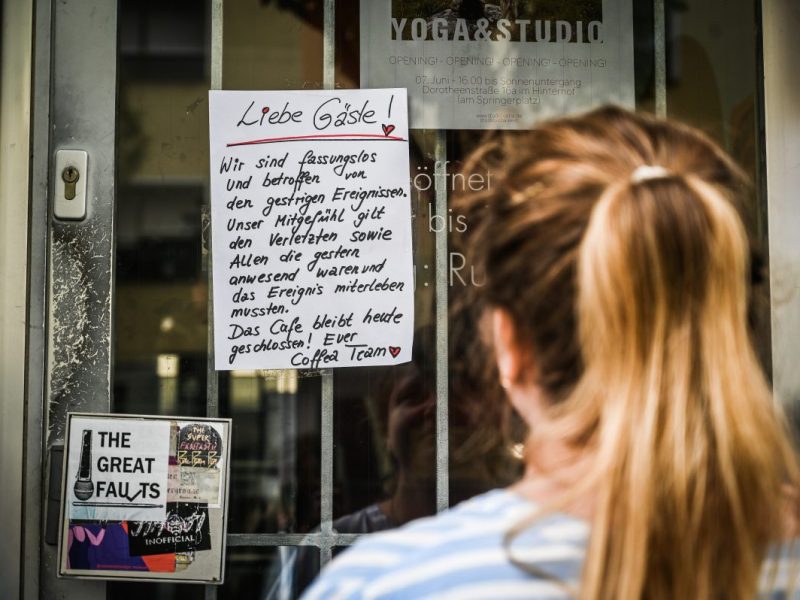 YOGA&STUDIO
OPENING! - OPENING! - OPENING! - OPENING!
07. Juni - 16:00 bis Sonnenuntergang
Dorotheenstraße 16a im Hinterhof
(am Springerplatz)
Liebe Gäste!
Wir sind fassungslos
und betroffen von
den gestrigen Ereignissen.
Unser Mitgefühl gilt
den Verletzten sowie
Allen die gestern
anwesend waren und
das Ereignis miterleben
mussten.
Das Cafe bleibt heute
geschlossen! Euer
Coffea Team
bis
THE
GREAT
FAULTS
THE
SUPER
INOFFICIAL